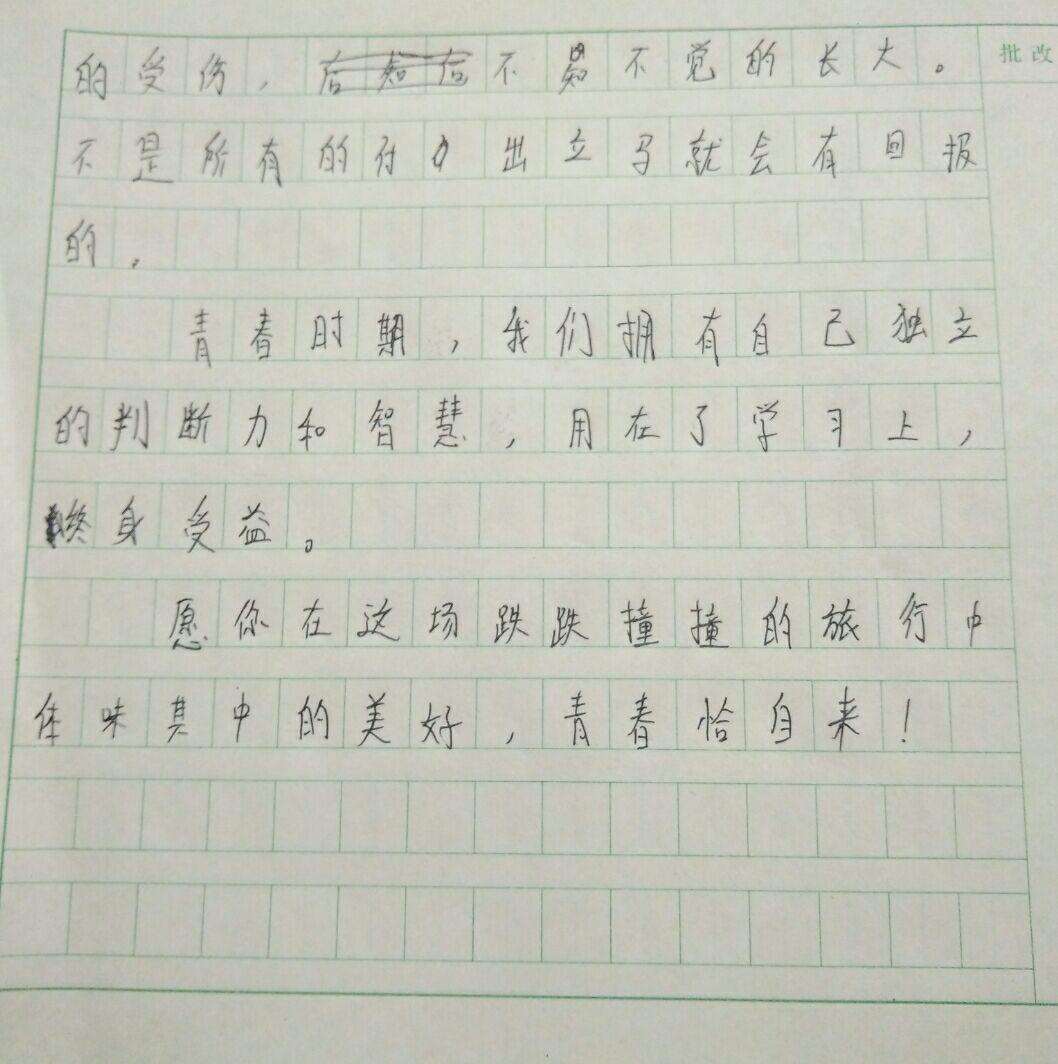 的受伤，后知后不知不觉的长大。
批改
不是所有的付出立马就会有回报
的，
青春时期，我们拥有自己独立
的判断力和智慧，用在了学习上，
终身受益。
愿你在这场跌跌撞撞的旅行中
体味其中的美好，青春恰自来！